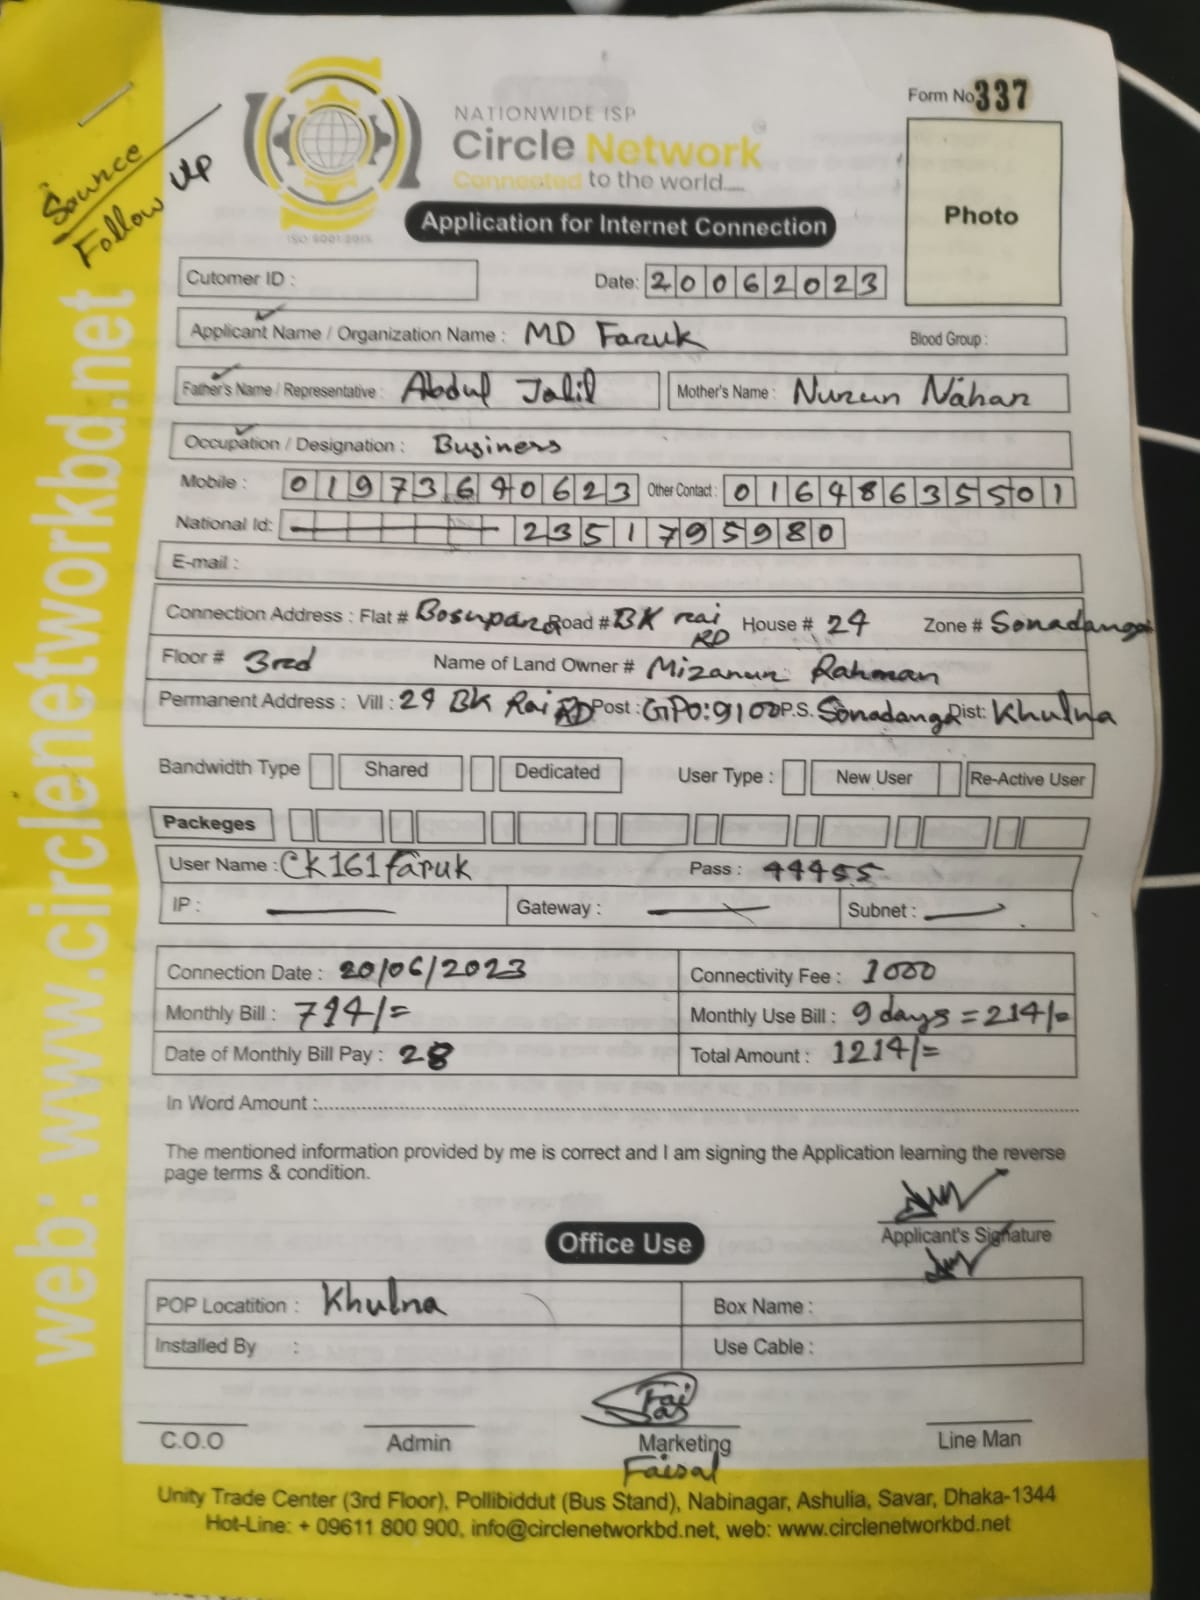 Source
Follow Up
NATIONWIDE ISP
Circle Network
Connected to the world.....
ISO 9001:2015
Form No 337
Photo
Application for Internet Connection
Cutomer ID :
Date: 20062023
Applicant Name / Organization Name : MD Faruk Blood Group :
Father's Name / Representative : Abdul Jalil Mother's Name : Nurun Nahar
Occupation / Designation : Business
Mobile : 01973640623 Other Contact : 01648635501
National Id: 2351795980
E-mail :
Connection Address : Flat # Bosupara Road # BK rai RD House # 24 Zone # Sonadanga
Floor # 3rd Name of Land Owner # Mizanur Rahman
Permanent Address : Vill : 24 BK Rai RD Post : GPO:9100 P.S. Sonadanga Dist: Khulna
Bandwidth Type Shared Dedicated User Type : New User Re-Active User
Packeges
User Name : CK161faruk Pass : 44455
IP : Gateway : Subnet :
Connection Date : 20/06/2023 Connectivity Fee : 1000
Monthly Bill : 714/= Monthly Use Bill : 9 days = 214/=
Date of Monthly Bill Pay : 28 Total Amount : 1214/=
In Word Amount :
The mentioned information provided by me is correct and I am signing the Application learning the reverse
page terms & condition.
Applicant's Signature
Office Use
POP Locatition : Khulna Box Name :
Installed By : Use Cable :
C.O.O Admin Marketing Line Man
Faisal
Unity Trade Center (3rd Floor), Pollibiddut (Bus Stand), Nabinagar, Ashulia, Savar, Dhaka-1344
Hot-Line: + 09611 800 900, info@circlenetworkbd.net, web: www.circlenetworkbd.net
web: www.circlenetworkbd.net